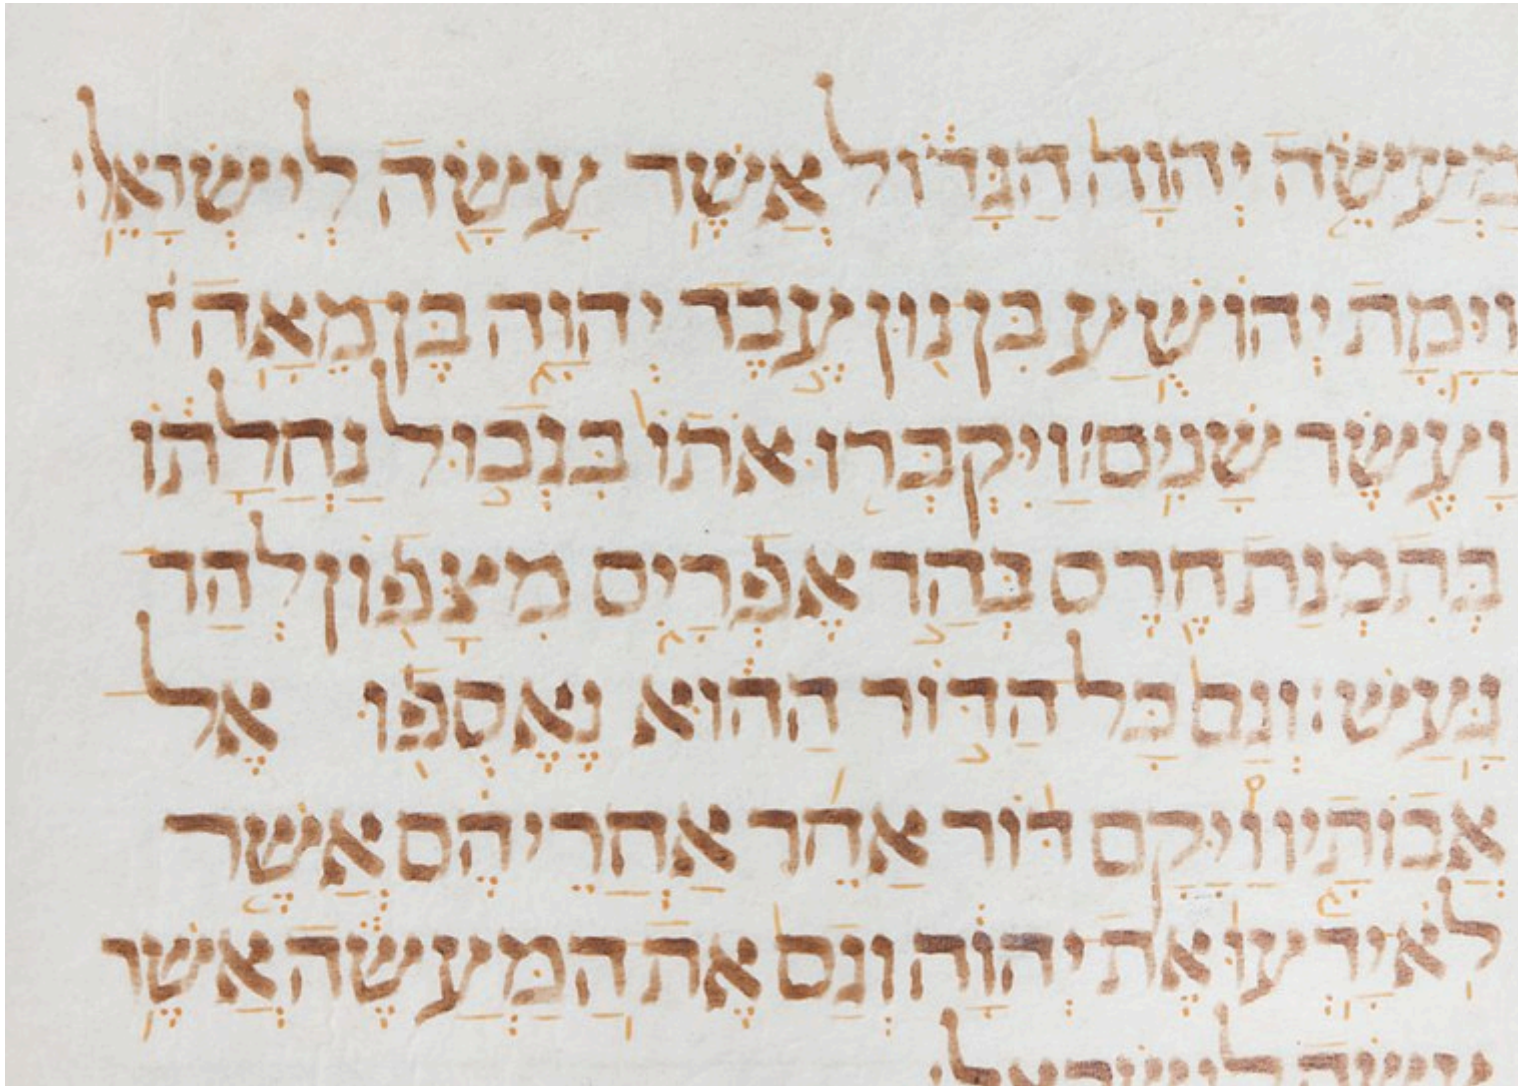 מַעֲשֵׂה יְהוָה הַגָּדוֹל אֲשֶׁר עָשָׂה לְיִשְׂרָאֵל׃
וַיָּמָת יְהוֹשֻׁעַ בִּן נוּן עֶבֶד יְהוָה בֶּן מֵאָה
וָעֶשֶׂר שָׁנִים׃ וַיִּקְבְּרוּ אֹתוֹ בִּגְבוּל נַחֲלָתוֹ
בְּתִמְנַת חֶרֶס בְּהַר אֶפְרָיִם מִצְּפוֹן לְהַר
גָּעַשׁ׃ וְגַם כָּל הַדּוֹר הַהוּא נֶאֶסְפוּ אֶל
אֲבוֹתָיו וַיָּקָם דּוֹר אַחֵר אַחֲרֵיהֶם אֲשֶׁר
לֹא יָדְעוּ אֶת יְהוָה וְגַם אֶת הַמַּעֲשֶׂה אֲשֶׁר
עשה לישראל